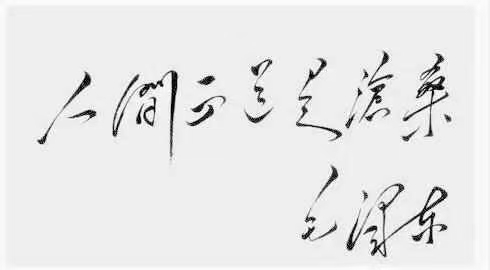 人间正道是滄桑
毛泽东